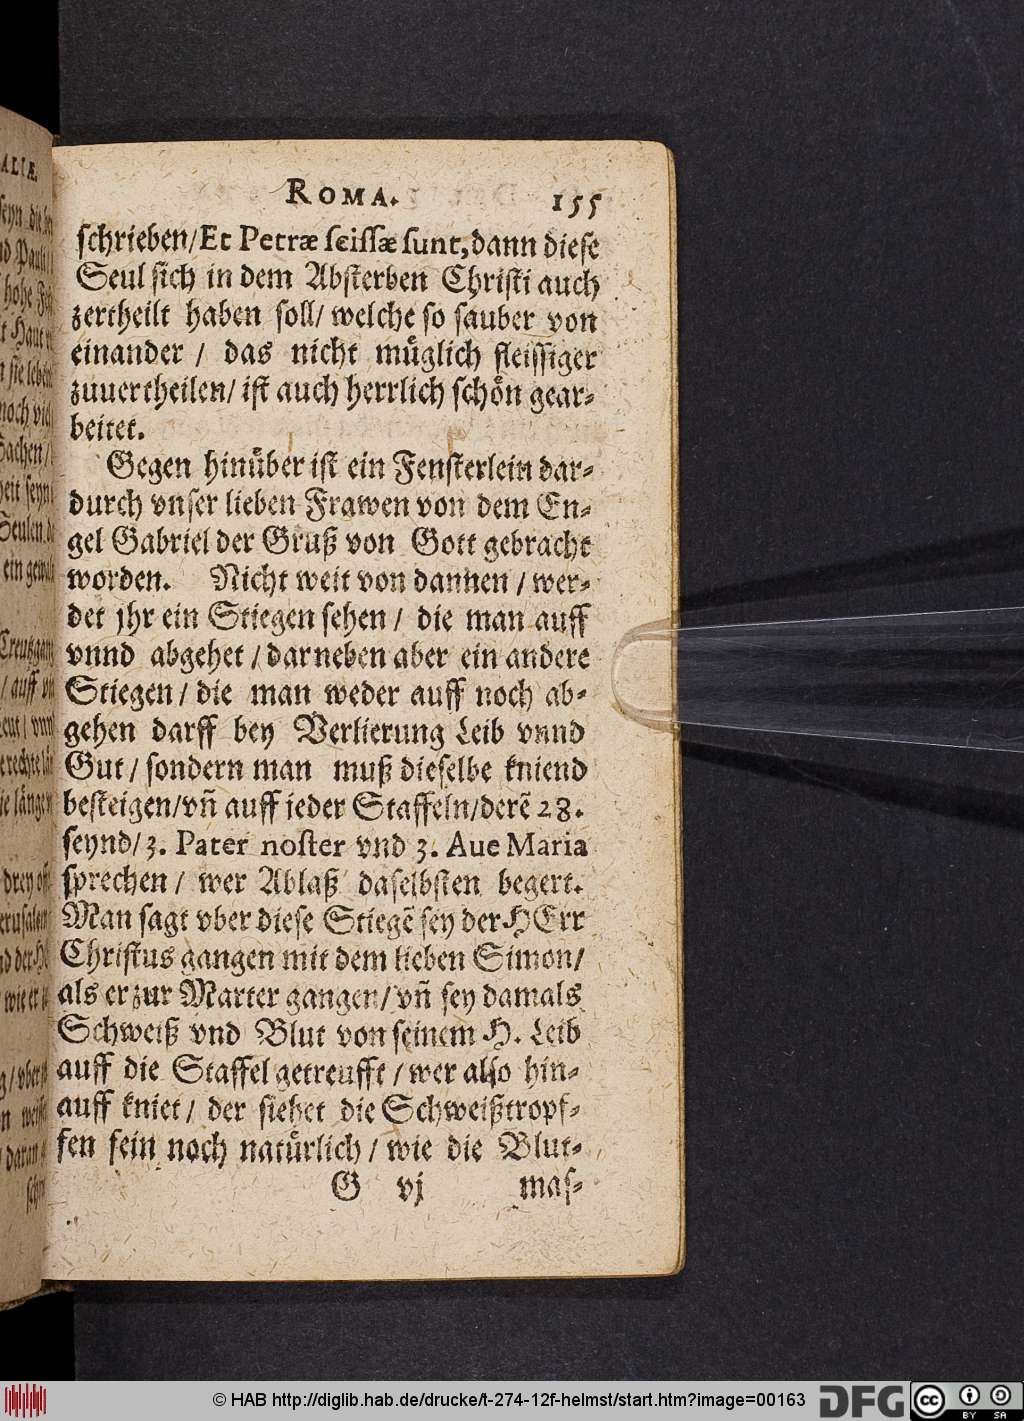 ROMA. 155
schrieben/Et Petræ scissæ sunt, dann diese
Seul sich in dem Absterben Christi auch
zertheilt haben soll/ welche so sauber von
einander / das nicht müglich fleissiger
zuuertheilen/ ist auch herrlich schön gear-
beitet.
Gegen hinüber ist ein Fensterlein dar-
durch vnser lieben Frawen von dem En-
gel Gabriel der Gruß von Gott gebracht
worden. Nicht weit von dannen / wer-
det jhr ein Stiegen sehen / die man auff
vnnd abgehet / darneben aber ein andere
Stiegen / die man weder auff noch ab-
gehen darff bey Verlierung Leib vnnd
Gut / sondern man muß dieselbe kniend
besteigen/vñ auff jeder Staffeln/derẽ 28.
seynd/ 3. Pater noster vnd 3. Aue Maria
sprechen / wer Ablaß daselbsten begert.
Man sagt vber diese Stiegẽ sey der HErr
Christus gangen mit dem lieben Simon/
als er zur Marter gangen/ vñ sey damals
Schweiß vnd Blut von seinem H. Leib
auff die Staffel getreufft / wer also hin-
auff kniet / der siehet die Schweißtropf-
fen fein noch natürlich / wie die Blut-
G vj mas-
© HAB http://diglib.hab.de/drucke/t-274-12f-helmst/start.htm?image=00163
DFG
cc BY SA